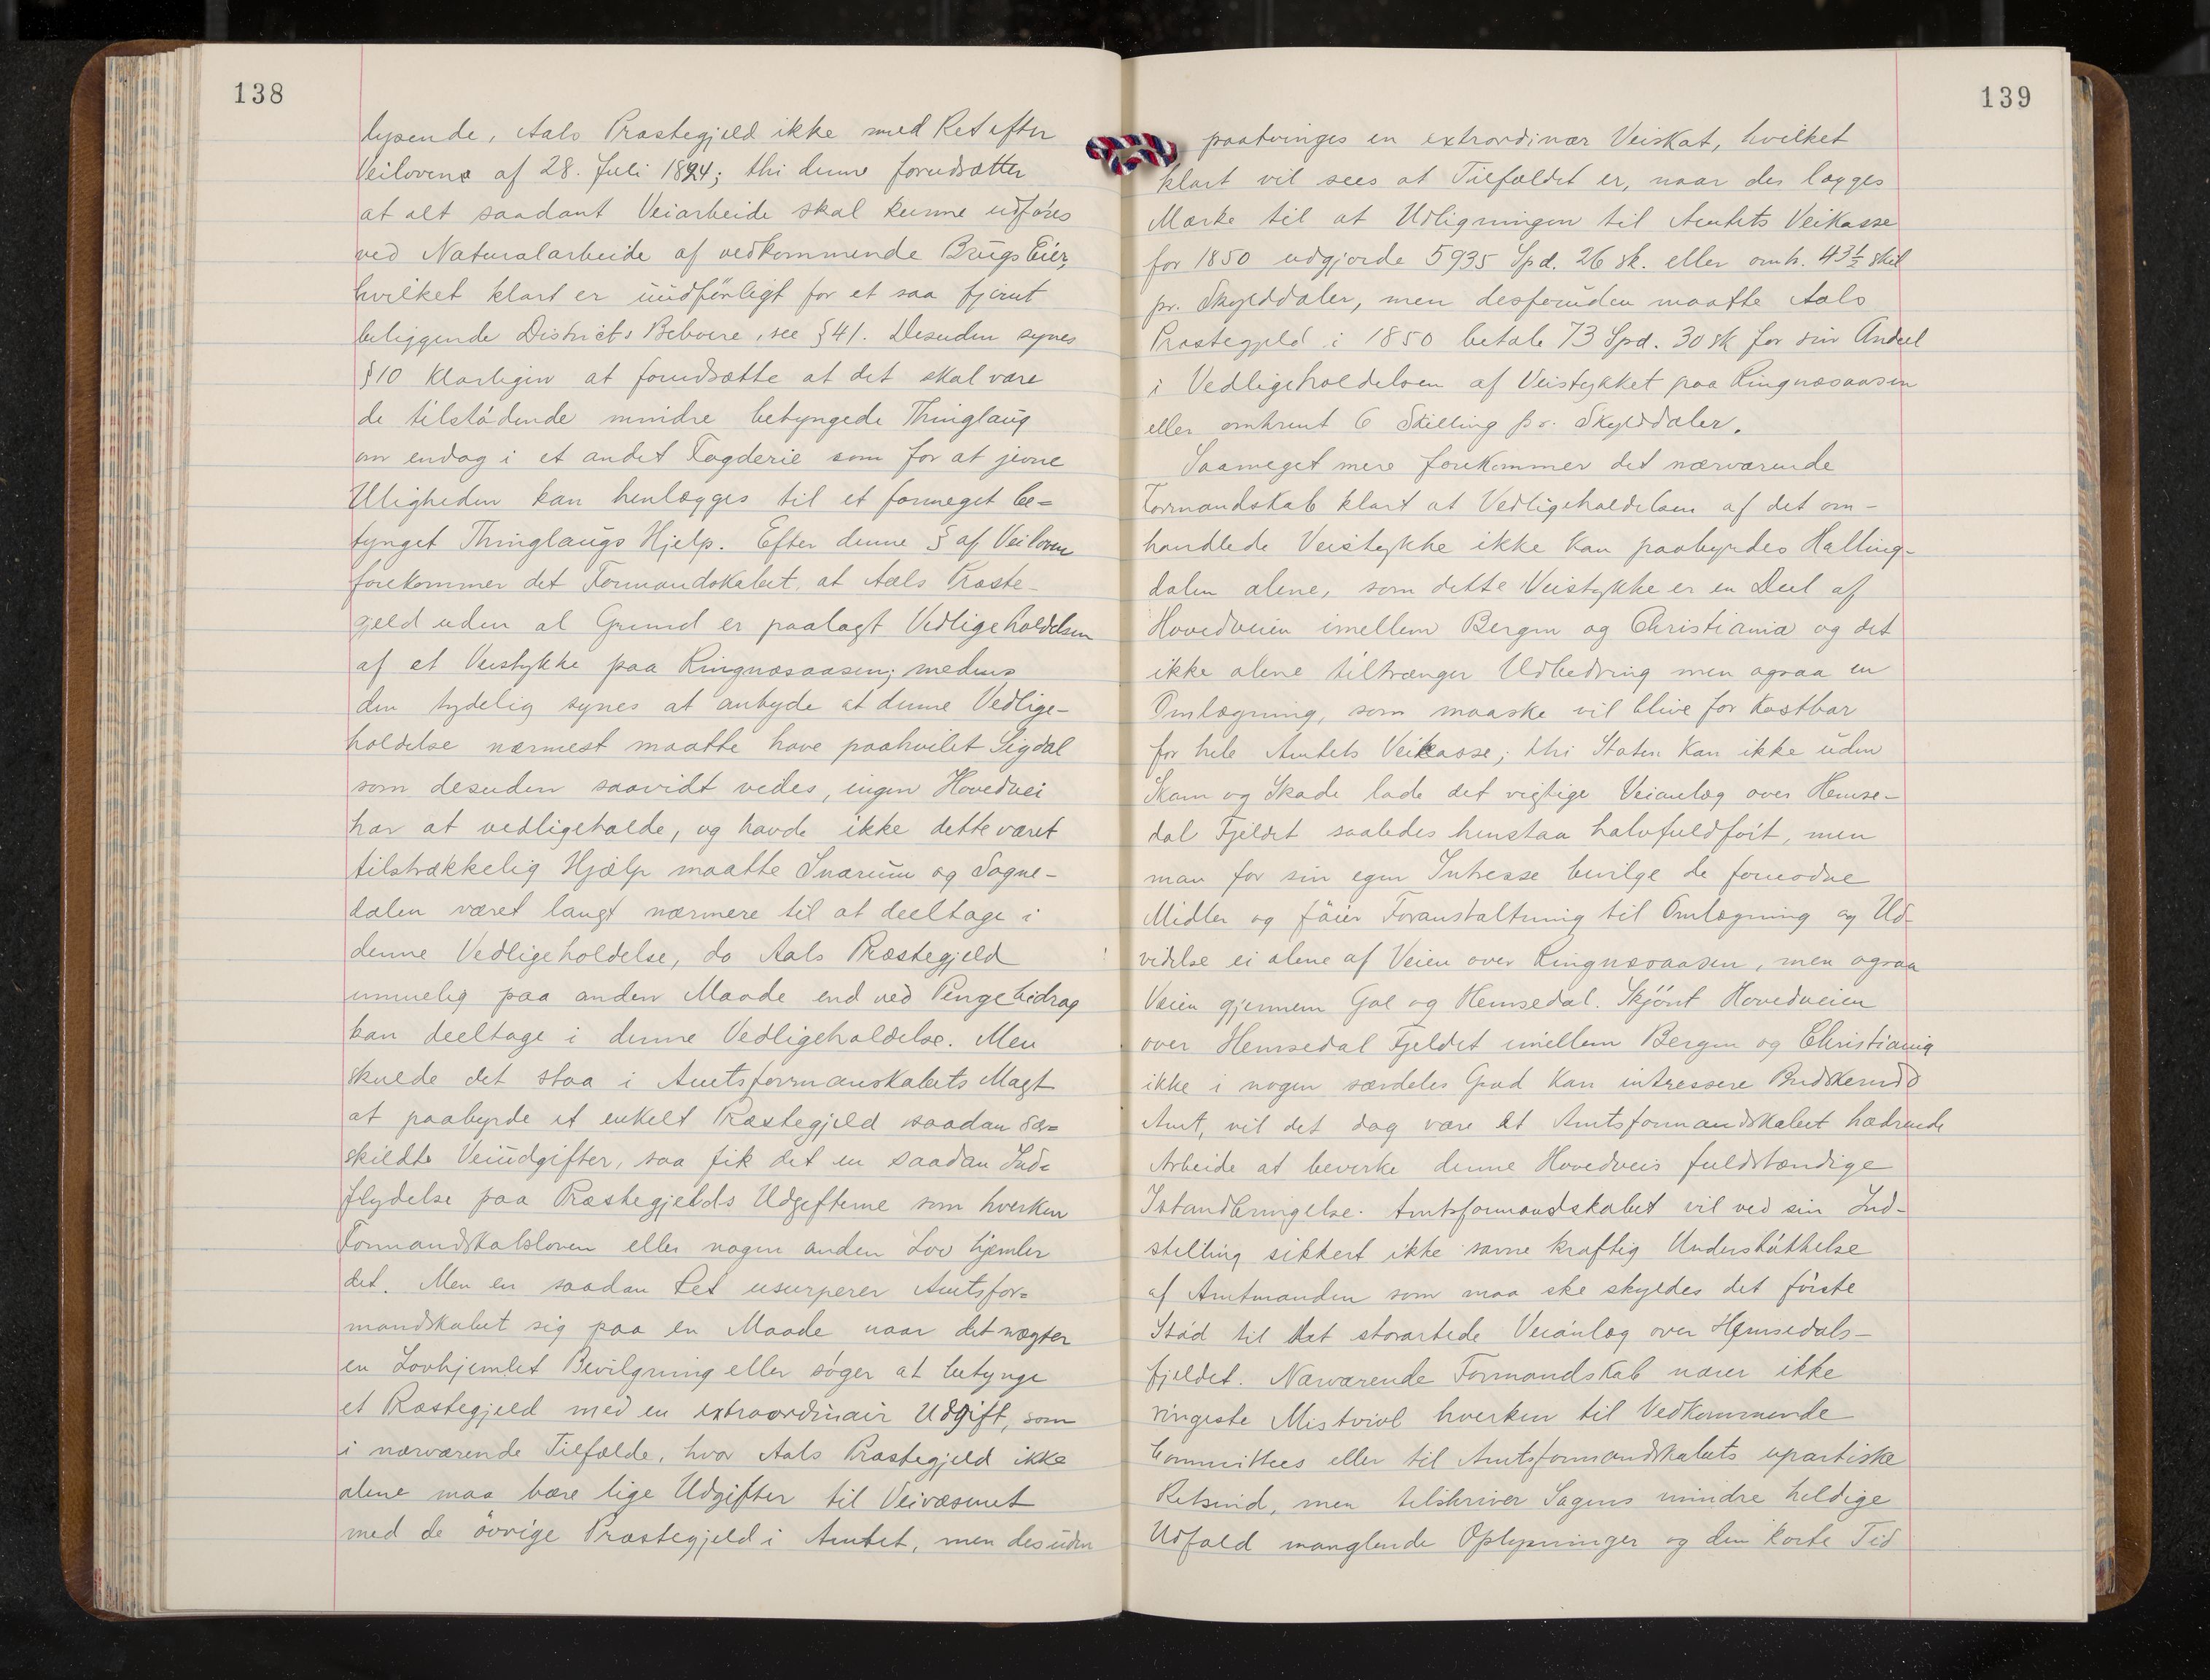 138
lysende, Aals Præstegjeld ikke med Ret efter
Veilovens af 28. Juli 1824; thi denne forudsætter
at alt saadant Veiarbeide skal kunne udføres
ved Naturalarbeide af vedkommende Brugs Eier,
hvilket klart er uudförligt for et saa fjernt
beliggende Districts Beboere, see § 41. Desuden synes
§ 10 klarligen at forudsætte at det skal være
de tilstödende mindre betyngede Thinglaug
om endog i et andet Fogderie som for at jevne
Uligheden kan henlægges til et formeget be=
tynget Thinglaugs Hjelp. Efter denne § af Veiloven
forekommer det Formandskabet, at Aals Præste-
gjeld uden al Grund er paalagt Vedligeholdelsen
af et Veistykke paa Ringnæsaasen; medens
den tydelig synes at antyde at denne Vedlige-
holdelse nærmest maatte have paahvilet Sigdal
som desuden saavidt vides, ingen Hovedvei
har at vedligeholde, og havde ikke dette været
tilstrækkelig Hjælp maatte Snarum og Sogne-
dalen været langt nærmere til at deeltage i
denne Vedligeholdelse, da Aals Præstegjeld
umuelig paa anden Maade end ved Pengebidrag
kan deeltage i denne Vedligeholdelse. Men
skulde det staa i Amtsformanskabets Magt
at paabyrde et enkelt Præstegjeld saadan sær=
skildte Veiudgifter, saa fik det en saadan Ind=
flydelse paa Præstegjelds Udgifterne som hverken
Formandskabsloven eller nogen anden Lov hjemler
det. Men en saadan Ret usurperer Amtsfor=
mandskabet sig paa en Maade naar det nægter
en Lovhjemlet Bevilgning eller søger at betynge
et Præstegjeld med en extraordinair Udgift, som
i nærværende Tilfælde, hvor Aals Præstegjeld ikke
alene maa bære lige Udgifter til Veivæsenet
med de övrige Præstegjeld i Amtet, men desuden
139
paatvinges en extrordinær Veiskat, hvilket
klart vil sees at Tilfældet er, naar der lægges
Mærke til at Udligningen til Amtets Veikasse
for 1850 udgjorde 5935 Spd. 26 sk. eller omtr. 43½ skil
pr. Skylddaler, men desforuden maatte Aals
Præstegjeld i 1850 betale 73 Spd. 30 sk for sin Andeel
i Vedligeholdelsen af Veistykket paa Ringnæsaasen
eller omtrent 6 Skilling pr. Skylddaler.
Saameget mere forekommer det nærværende
Formandskab klart at Vedligeholdelsen af det om-
handlede Veistykke ikke kan paabyrdes Halling-
dalen alene, som dette Veistykke er en Deel af
Hovedveien imellem Bergen og Christiania og det
ikke alene tiltrænger Udbedring men ogsaa en
Omlægning, som maaske vil blive for kostbar
for hele Amtets Veikasse; thi Staten kan ikke uden
Skam og Skade lade det vigtige Veianlæg over Hemse-
dal Fjeldet saaledes henstaa halvfuldført, men
maa for sin egen Intresse bevilge de fornødne
Midler og föier Foranstaltning til Omlægning og Ud-
videlse ei alene af Veien over Ringnæsaasen, men ogsaa
Veien gjennem Gol og Hemsedal. Skjönt Hovedveien
over Hemsedal Fjeldet imellem Bergen og Christiania
ikke i nogen særdeles Grad kan intressere Buskeruds
Amt, vil det dog være et Amtsformandskabet hædrende
Arbeide at bevirke denne Hovedveis fuldstændige
Istandbringelse. Amtsformandskabet vil ved sin Ind-
stilling sikkert ikke savne kraftig Understöttelse
af Amtmanden som maa ske skyldes det förste
Stöd til det storartede Veianlæg over Hemsedals-
fjeldet. Nærværende Formandskab nærer ikke
ringeste Mistvivl hverken til Vedkommende
Committees eller til Amtsformandskabets upartiske
Retsind, men tilskriver Sagens mindre heldige
Udfald manglende Oplysninger og den korte Tid